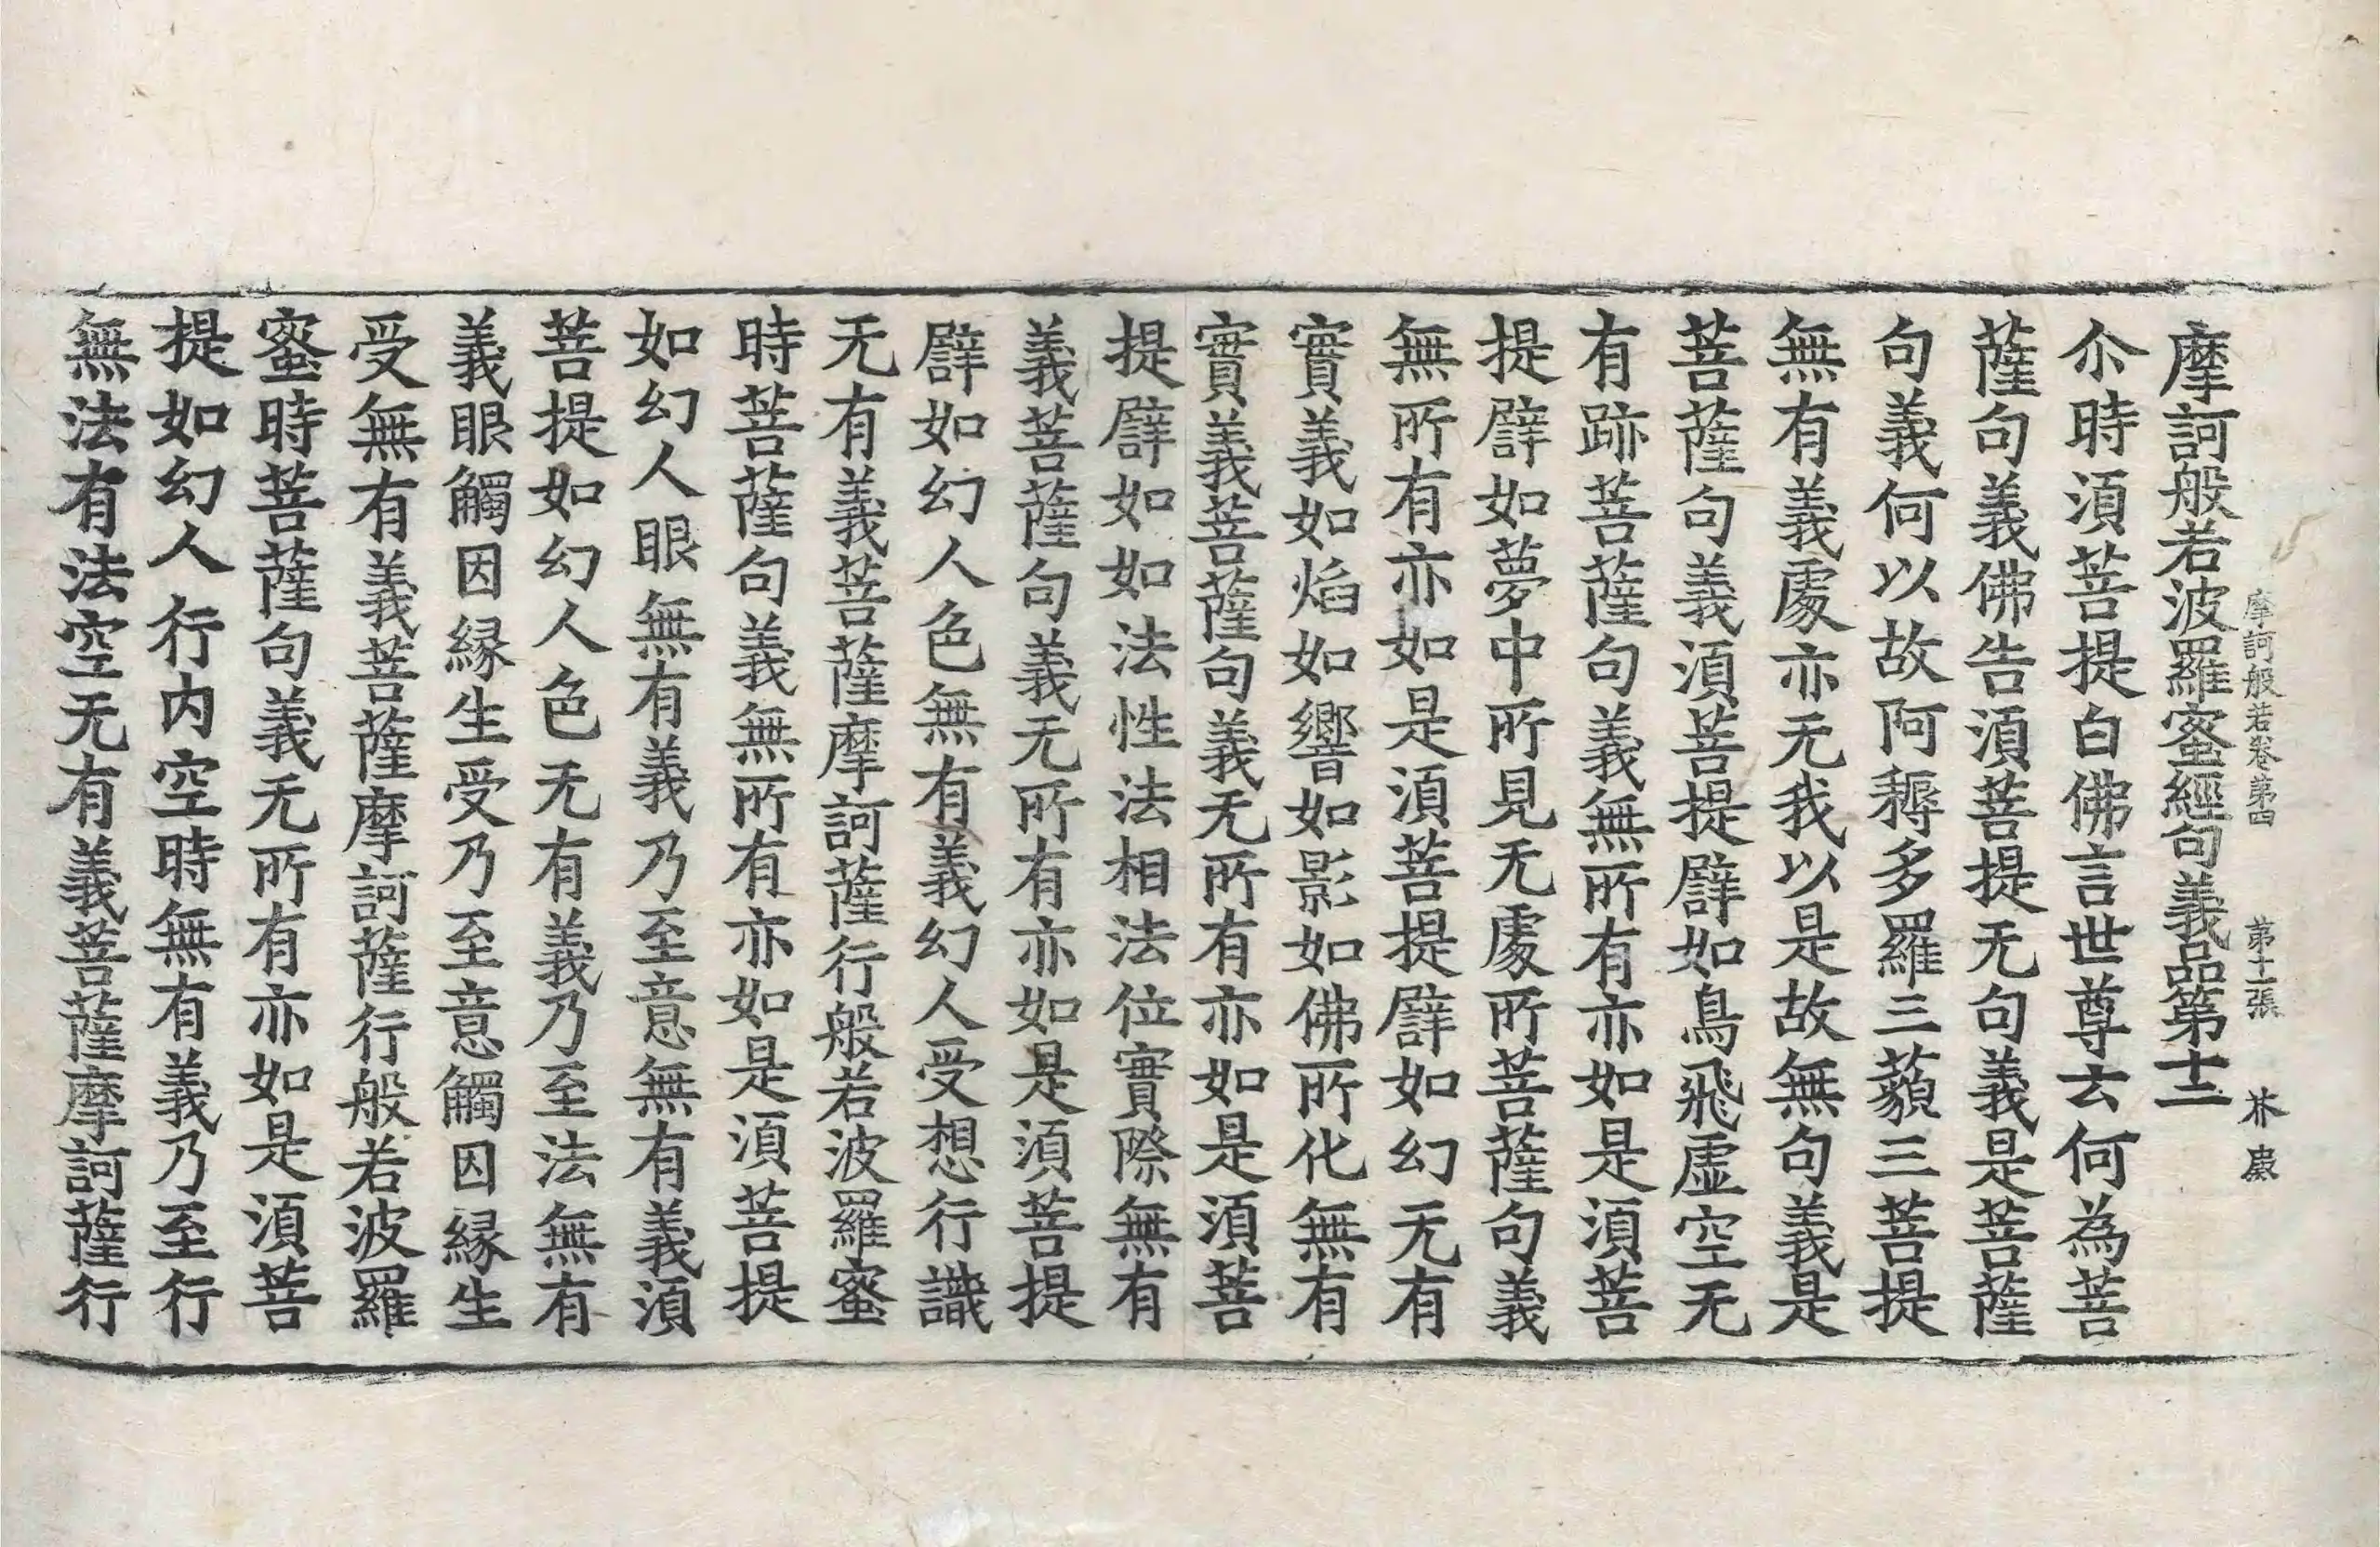 摩訶般若卷第四　第十二張　芥　㡾
摩訶般若波羅蜜經句義品第十二
尒時須菩提白佛言世尊云何為菩
薩句義佛告須菩提无句義是菩薩
句義何以故阿耨多羅三藐三菩提
無有義處亦无我以是故無句義是
菩薩句義須菩提譬如鳥飛虛空无
有跡菩薩句義無所有亦如是須菩
提譬如夢中所見无處所菩薩句義
無所有亦如是須菩提譬如幻无有
實義如焰如響如影如佛所化無有
實義菩薩句義无所有亦如是須菩
提譬如如法性法相法位實際無有
義菩薩句義无所有亦如是須菩提
譬如幻人色無有義幻人受想行識
无有義菩薩摩訶薩行般若波羅蜜
時菩薩句義無所有亦如是須菩提
如幻人眼無有義乃至意無有義須
菩提如幻人色无有義乃至法無有
義眼觸因緣生受乃至意觸因緣生
受無有義菩薩摩訶薩行般若波羅
蜜時菩薩句義无所有亦如是須菩
提如幻人行內空時無有義乃至行
無法有法空无有義菩薩摩訶薩行